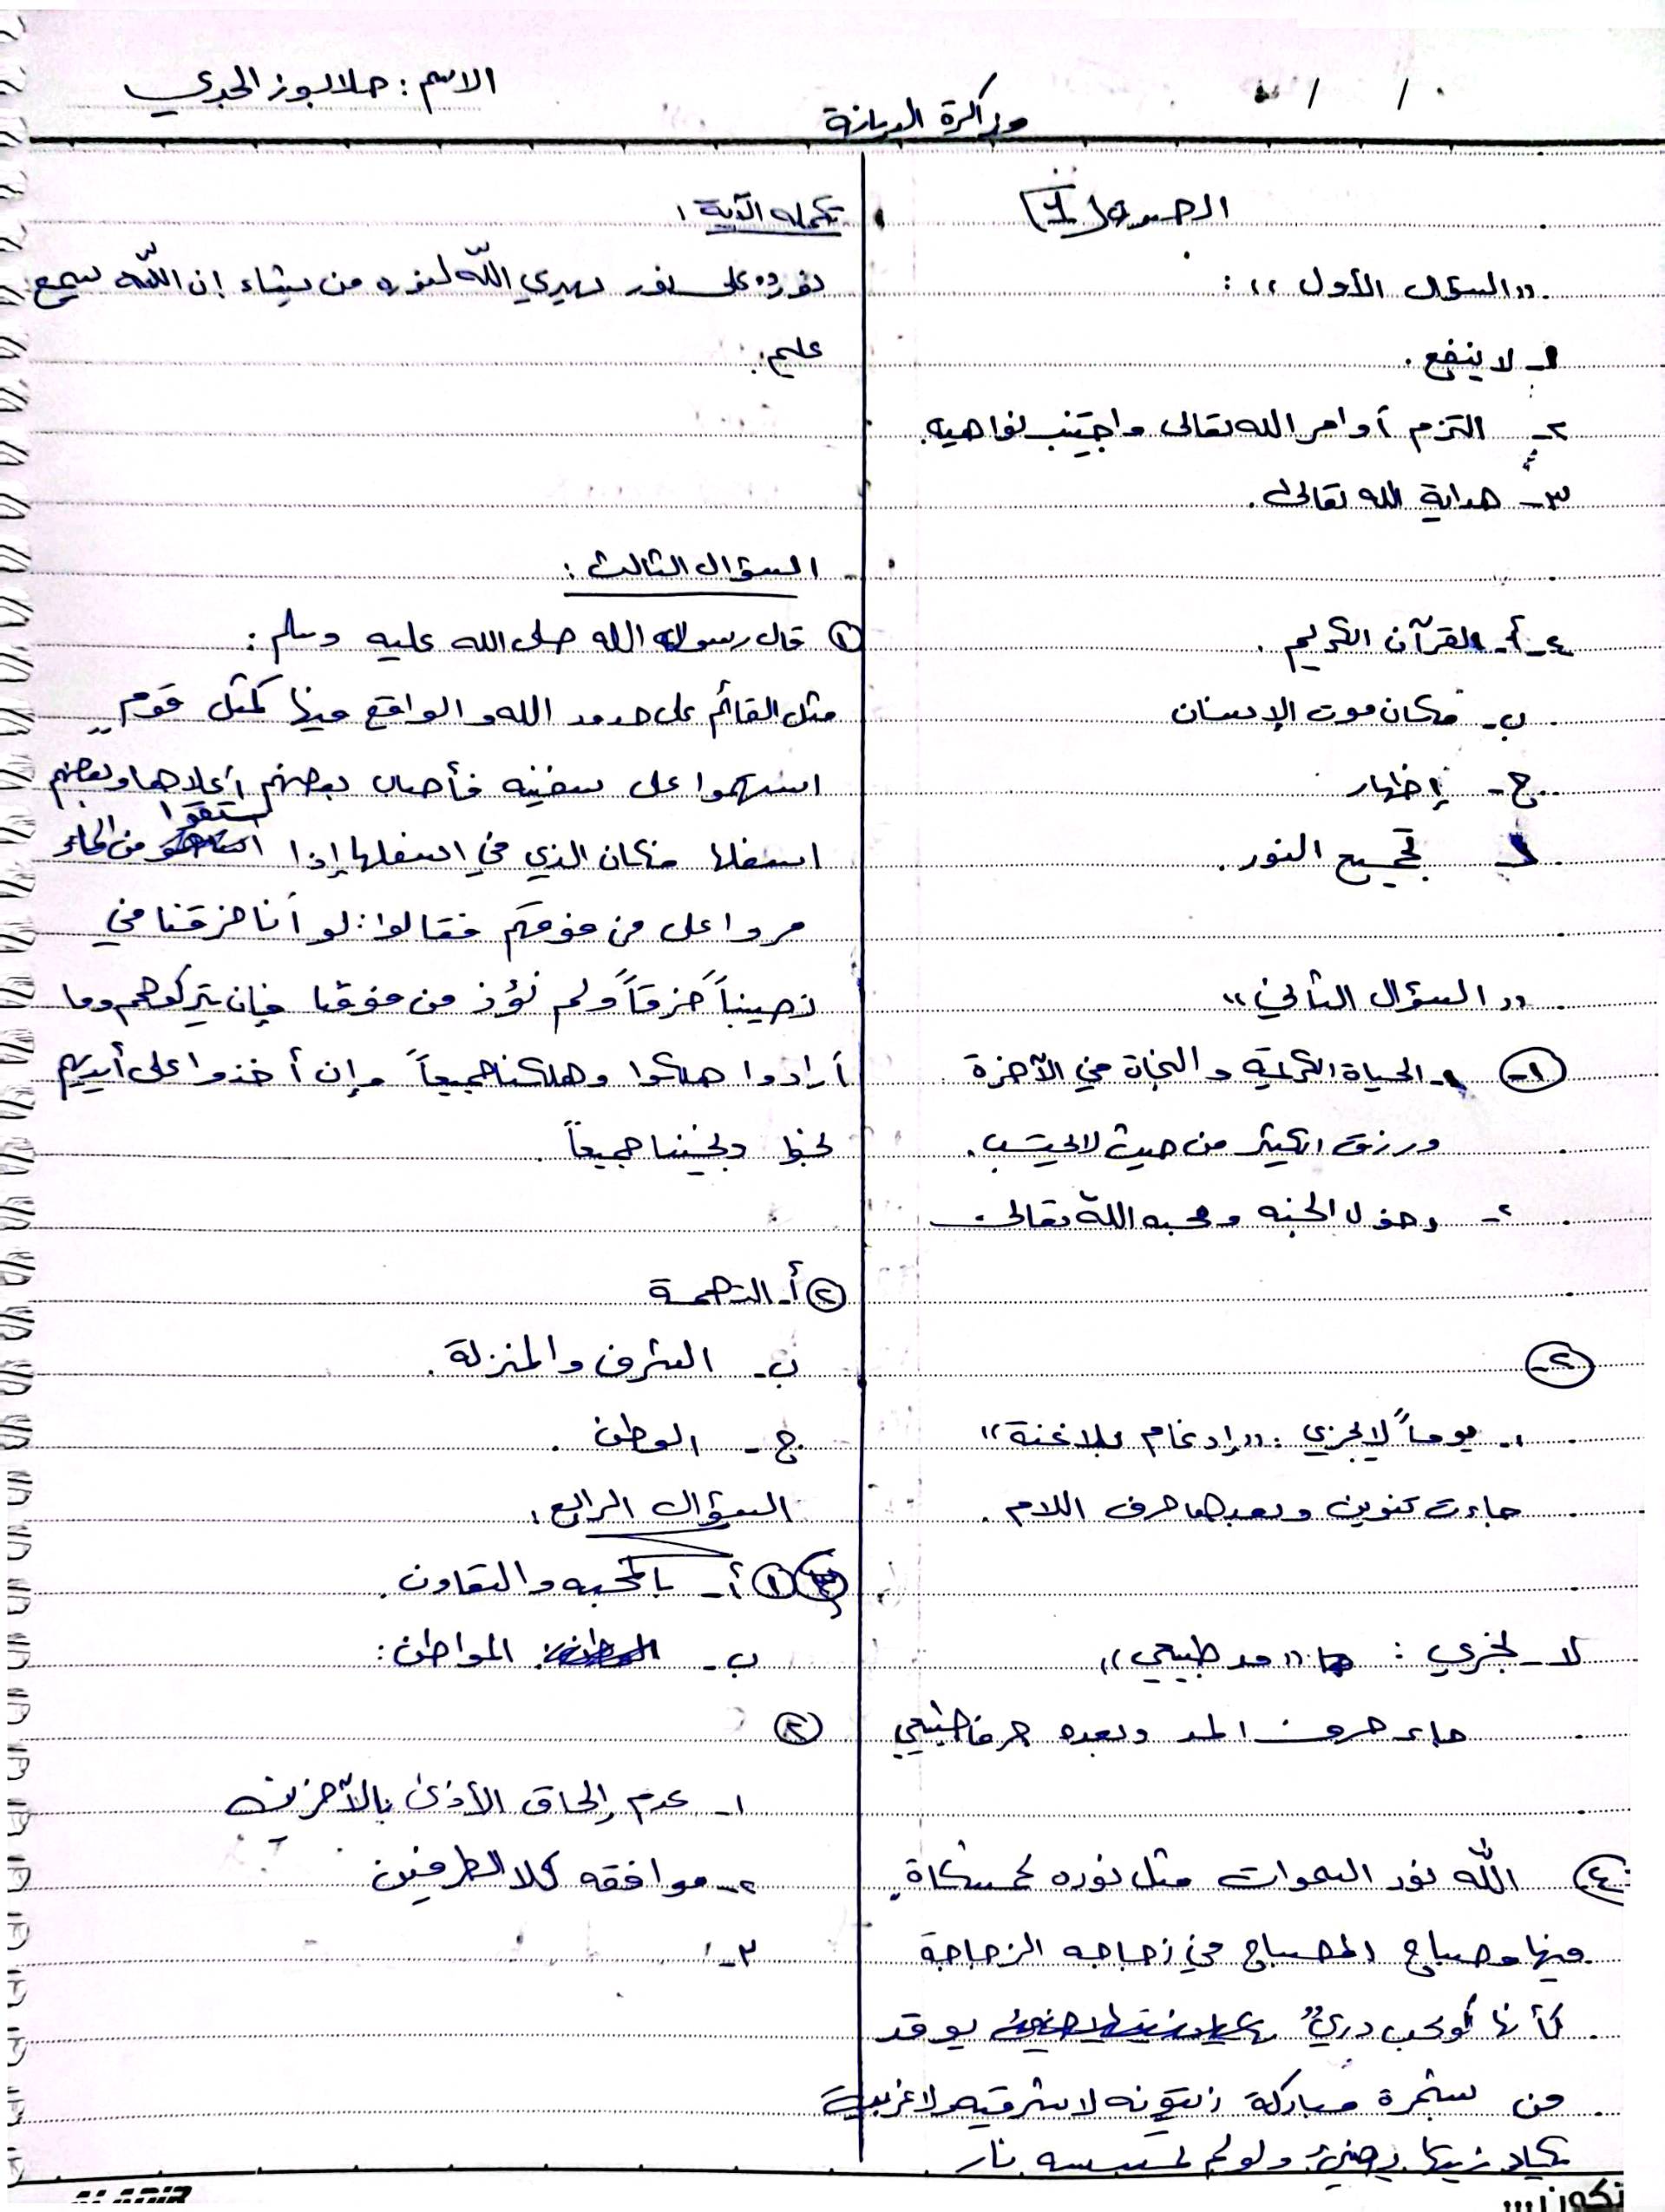 الاسم : حلا بوز الجدي
/ /
مذاكرة الديانة
الجدول 1
"السؤال الأول" :
١- لا ينفع .
٢- التزم أوامر الله تعالى واجتنب نواهيه .
٣- هداية الله تعالى .
٤- أ- القرآن الكريم .
ب- مكان موت الإنسان
ج- إظهار
د- تجميع النور .
"السؤال الثاني"
١- ١- الحياة الكريمة والنجاة في الآخرة
ورزق الكثير من حيث لا يحتسب .
٢- دخول الجنه ومحبه الله تعالى .
٢-
١- يوماً لا يجزي : "إدغام بلا غنة"
جاءت تنوين وبعدها حرف اللام .
لا تجزي : "مد طبيعي"
جاء حرف المد وبعده حرف طبيعي
٤ الله نور السموات مثل نوره كمشكاة
فيها مصباح المصباح في زجاجه الزجاجة
كأنها كوكب دريٌ يوقد
من شجرة مباركة زيتونه لا شرقيه ولا غربية
يكاد زيتها يضيء ولو لم تمسسه نار
تكملة الآية :
نور على نور يهدي الله لنوره من يشاء إن الله سميع
عليم .
السؤال الثالث :
١ قال رسول الله صلى الله عليه وسلم :
مثل القائم على حدود الله والواقع فيها كمثل قوم
استهموا على سفينه فأصاب بعضهم أعلاها وبعضهم
اسفلها فكان الذي في اسفلها إذا استقوا من الماء
مروا على من فوقهم فقالوا : لو أنا خرقنا في
نصيبناً خرقاً ولم نؤذ من فوقنا فإن يتركوهم وما
أرادوا هلكوا وهلكنا جميعاً وإن أخذوا على أيديهم
نجوا ونجينا جميعاً .
٢ أ- التهمة
ب- الشرف والمنزلة .
ج- الوطن .
السؤال الرابع :
١ أ- بالمحبه والتعاون .
ب- المواطن :
٢
١- عدم إلحاق الأذى بالآخرين
٢- موافقه كلا الطرفين
٣-